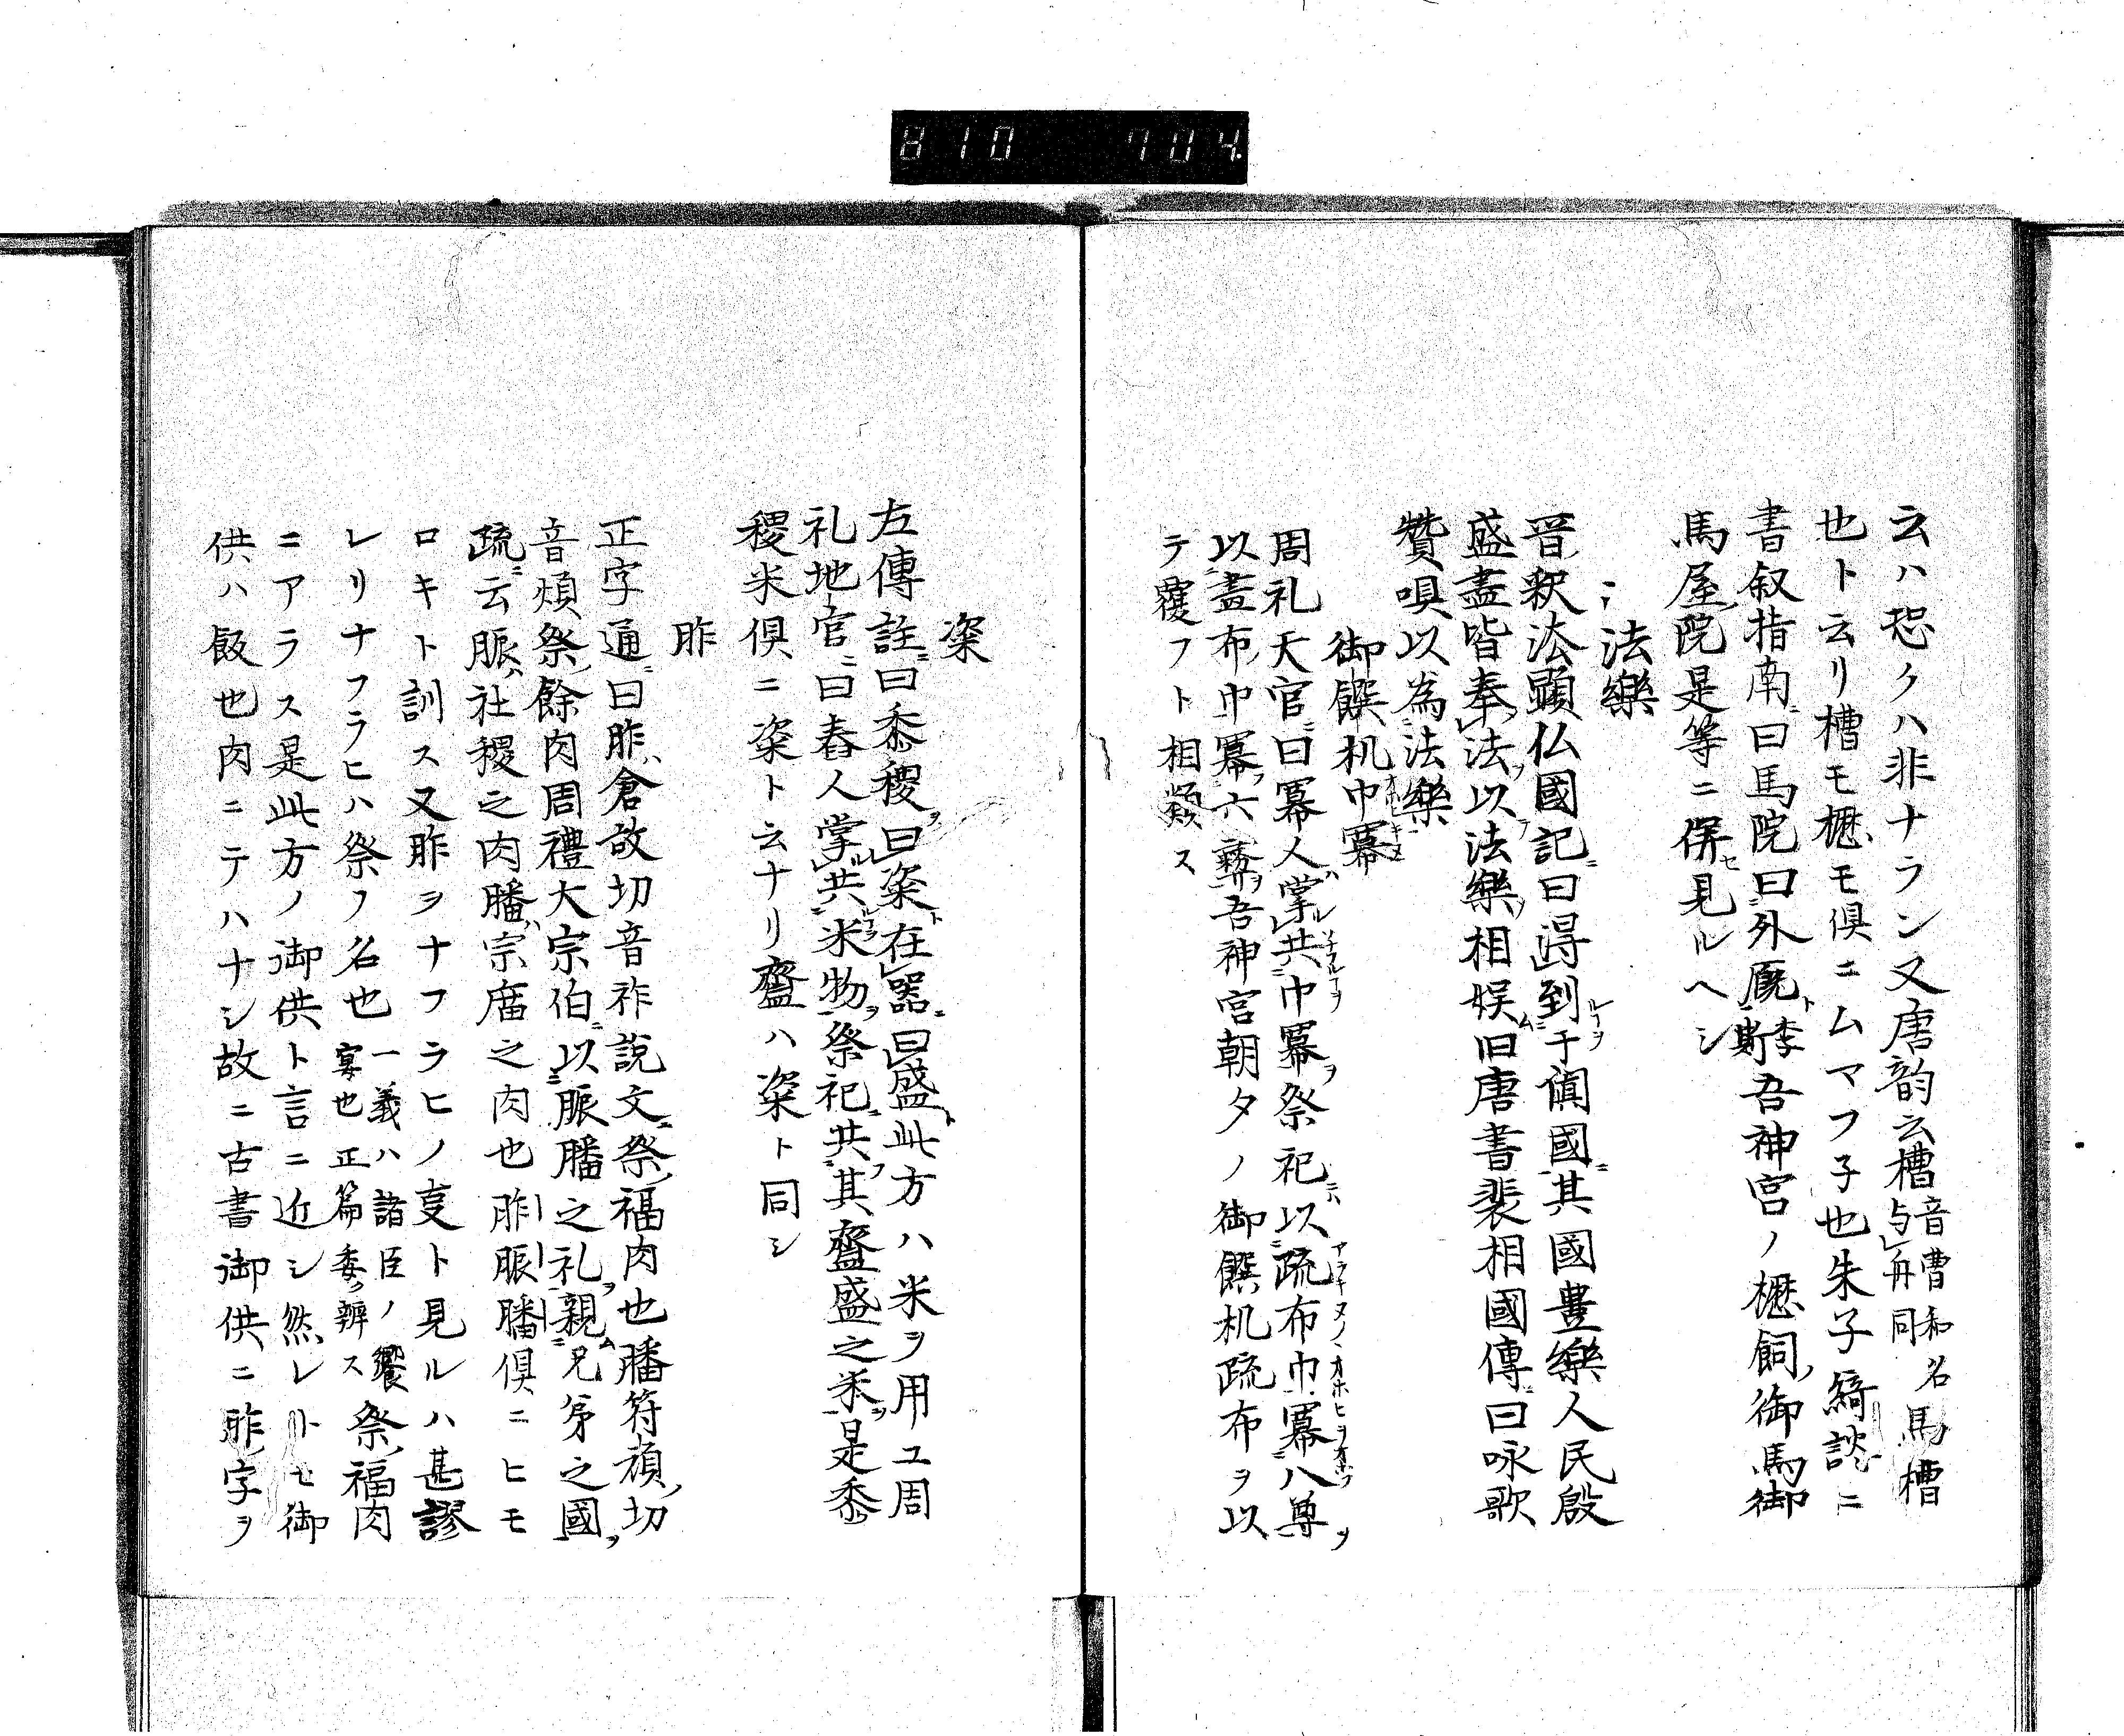 810 704
云ハ恐クハ非ナラン又唐韵云槽音曹和名馬槽与舟同
也ト云リ槽モ櫪モ倶ニムマフ子也朱子綺談ニ
書叙指南ニ曰馬院曰外厩ト李斯吾神宮ノ櫪飼御馬御
馬屋院是等ニ併セ見ルヘシ
法樂
晋釈法顕仏國記ニ曰得到于闐國其國豊樂人民殷
盛盡皆奉法以法樂相娯旧唐書裴相國傳ニ曰咏歌
贊唄以為法樂
御饌机巾冪
周礼天官ニ曰冪人掌共巾冪ヲ祭祀ニハ以疏布巾冪八尊ヲ
以畫布巾冪六彝ヲ吾神宮朝夕ノ御饌机疏布ヲ以
テ覆フト相類ス
粢
左傳註ニ曰黍稷ヲ曰粢ト在器ニ曰盛ト此方ハ米ヲ用ユ周
礼地官ニ曰舂人掌共米物ヲ祭祀ニ共其齍盛之米ヲ是黍
稷米倶ニ粢ト云ナリ齍ハ粢ト同シ
胙
正字通ニ曰胙倉故切音祚説文ニ祭福肉也膰符頑切
音煩祭餘肉周禮大宗伯ニ以脤膰之礼ヲ親ム兄弟之國ヲ
疏ニ云脤ハ社稷之肉膰ハ宗庿之肉也胙脤膰倶ニヒモ
ロキト訓ス又胙ヲナフラヒノ叓ト見ルハ甚謬
レリナフラヒハ祭ノ名也一義ハ諸臣ノ饗宴也正篇委ク辨ス祭福肉
ニアラス是此方ノ御供ト言ニ近シ然レトセ御
供ハ飯也肉ニテハナシ故ニ古書御供ニ胙字ヲ